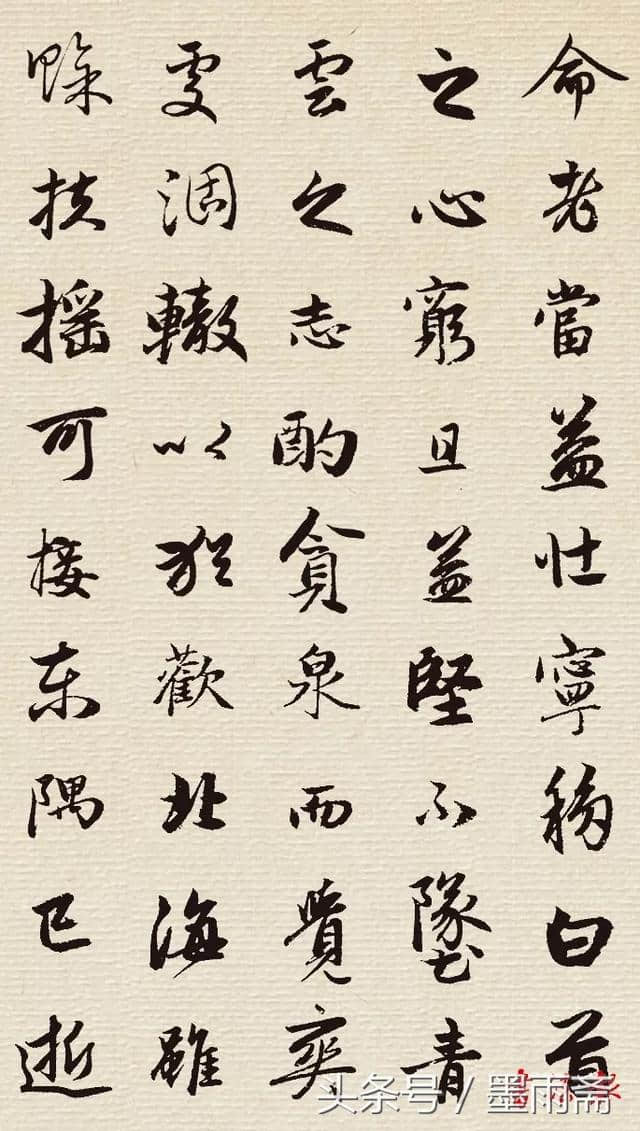 命老當益壯寧移白首
之心窮且益堅不墜青
雲之志酌貪泉而覺爽
處涸轍以猶歡北海雖
賒扶搖可接東隅已逝
头条号 / 墨雨斋